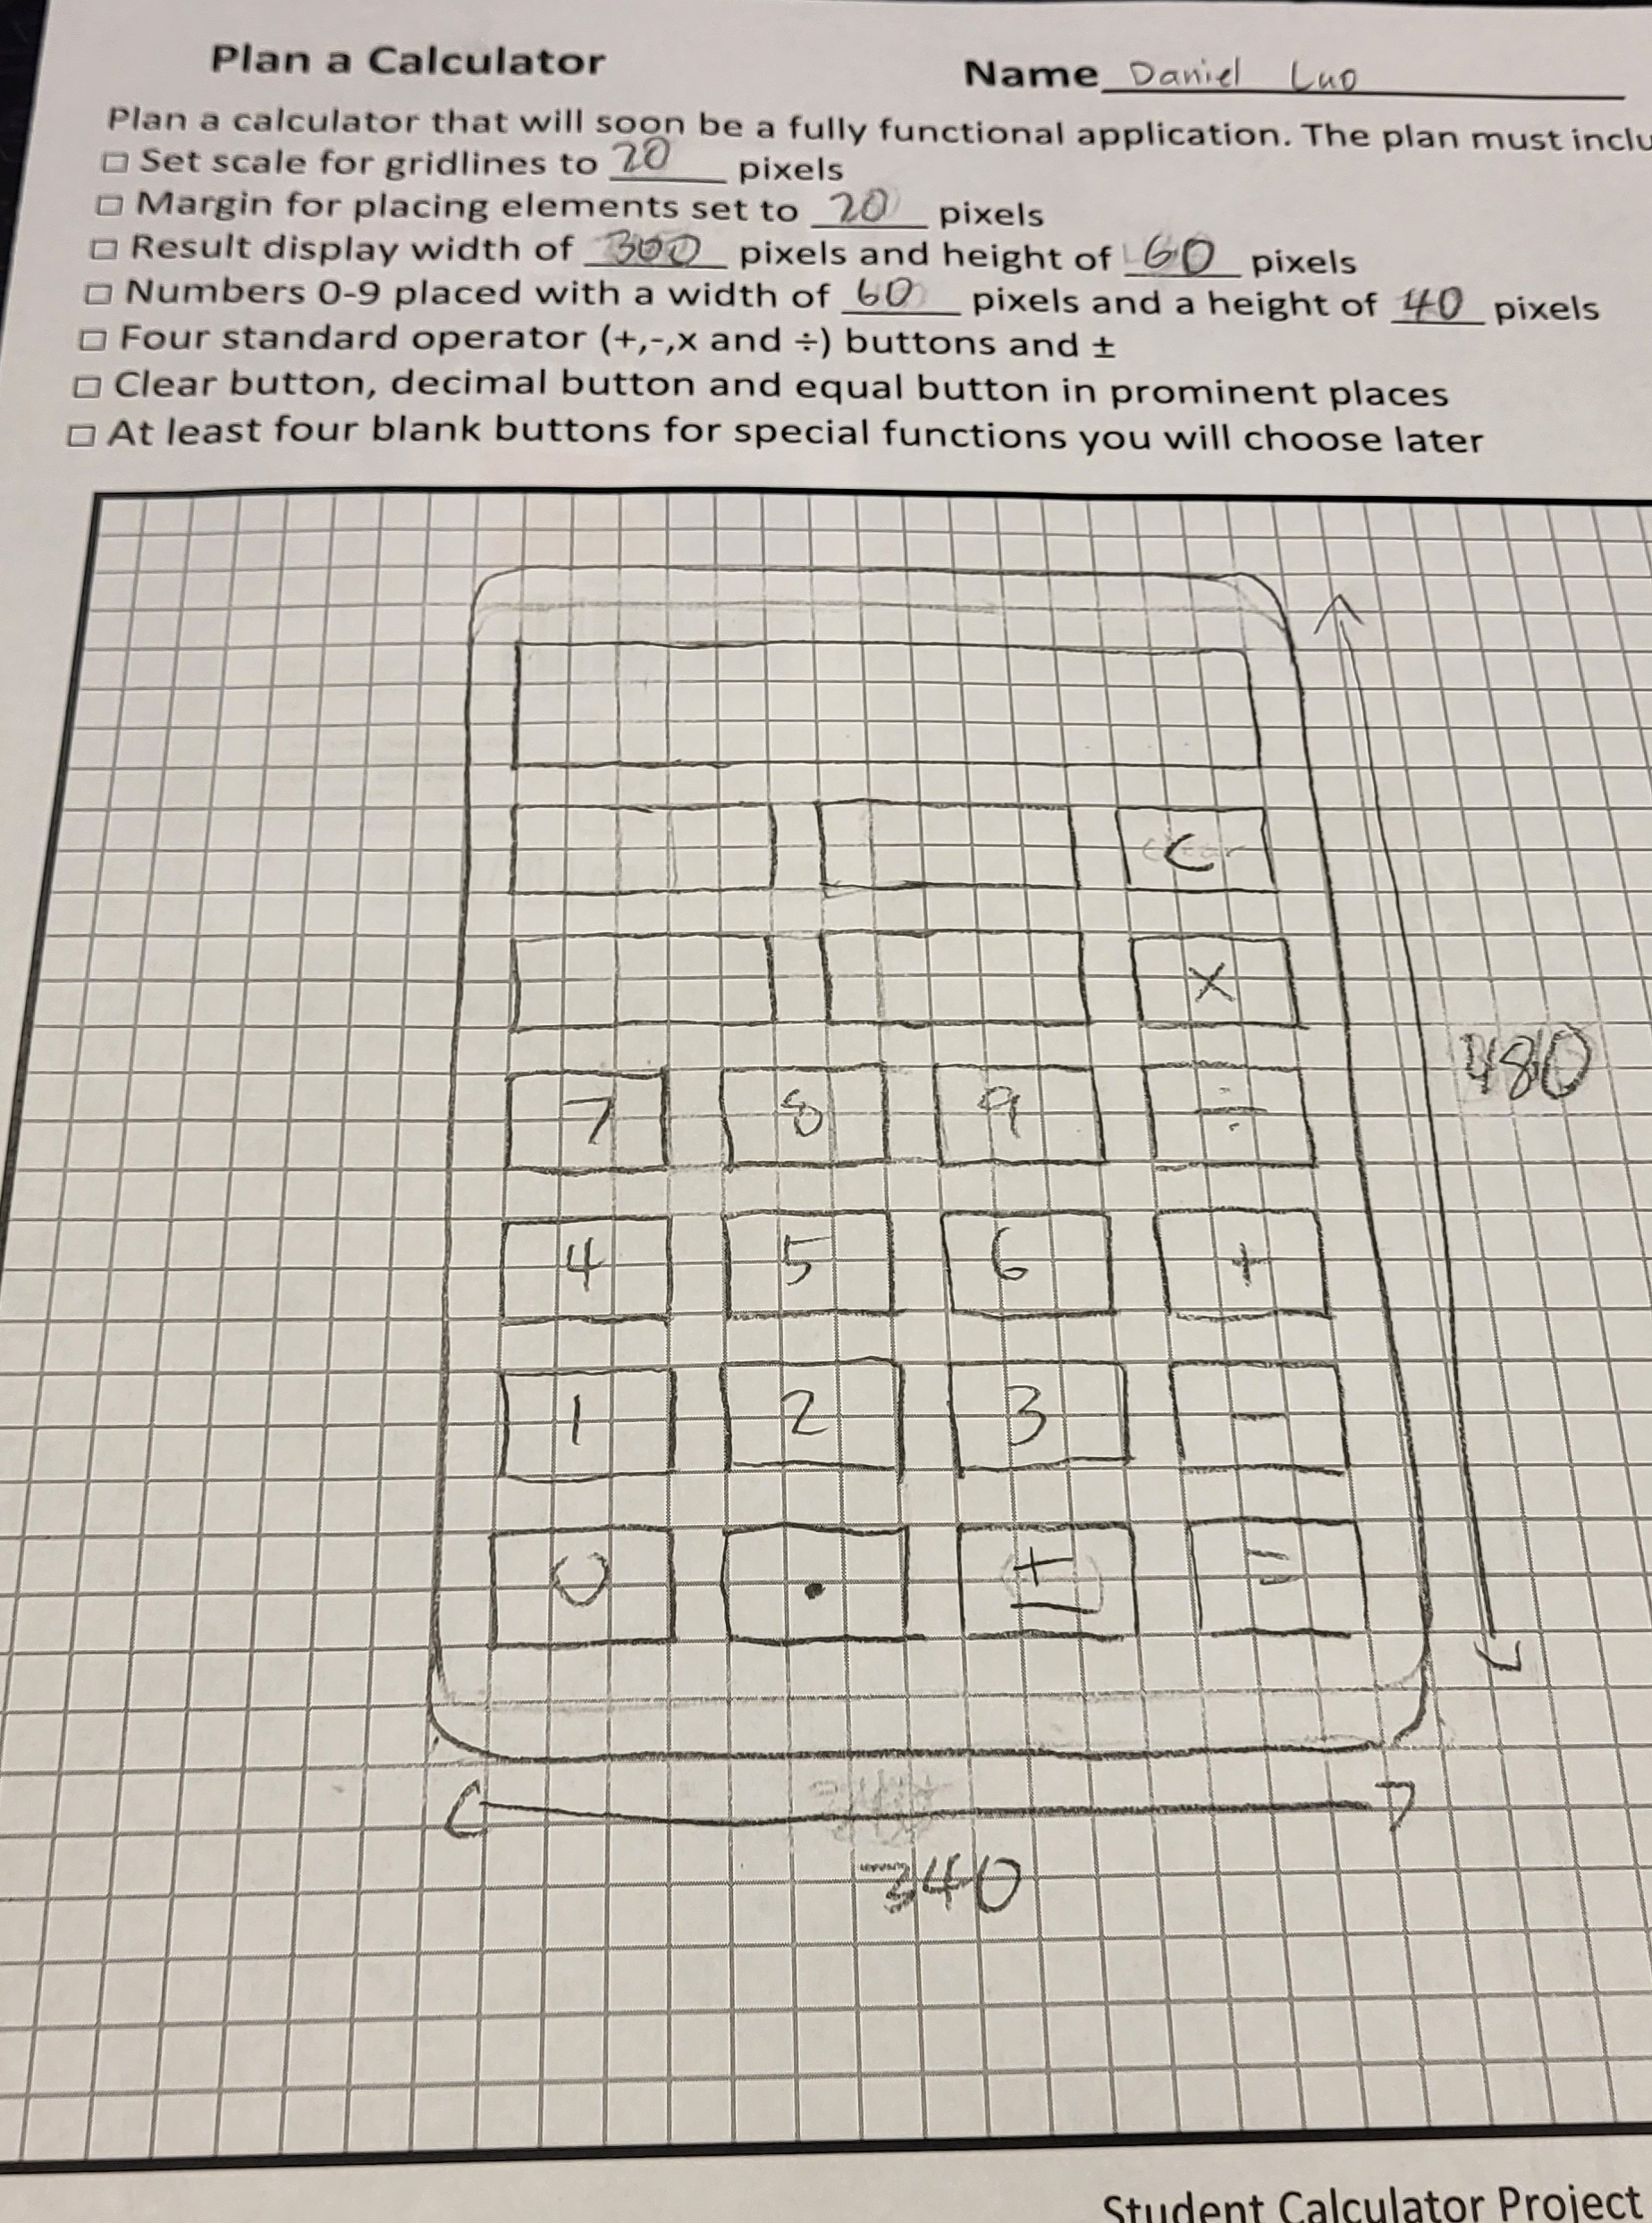 Plan a Calculator
Name Daniel Luo
Plan a calculator that will soon be a fully functional application. The plan must inclu
□ Set scale for gridlines to 20 pixels
□ Margin for placing elements set to 20 pixels
□ Result display width of 300 pixels and height of 60 pixels
□ Numbers 0-9 placed with a width of 60 pixels and a height of 40 pixels
□ Four standard operator (+,-,x and ÷) buttons and ±
□ Clear button, decimal button and equal button in prominent places
□ At least four blank buttons for special functions you will choose later
C
X
480
7 8 9 ÷
4 5 6 +
1 2 3 -
0 . ± =
340
Student Calculator Project